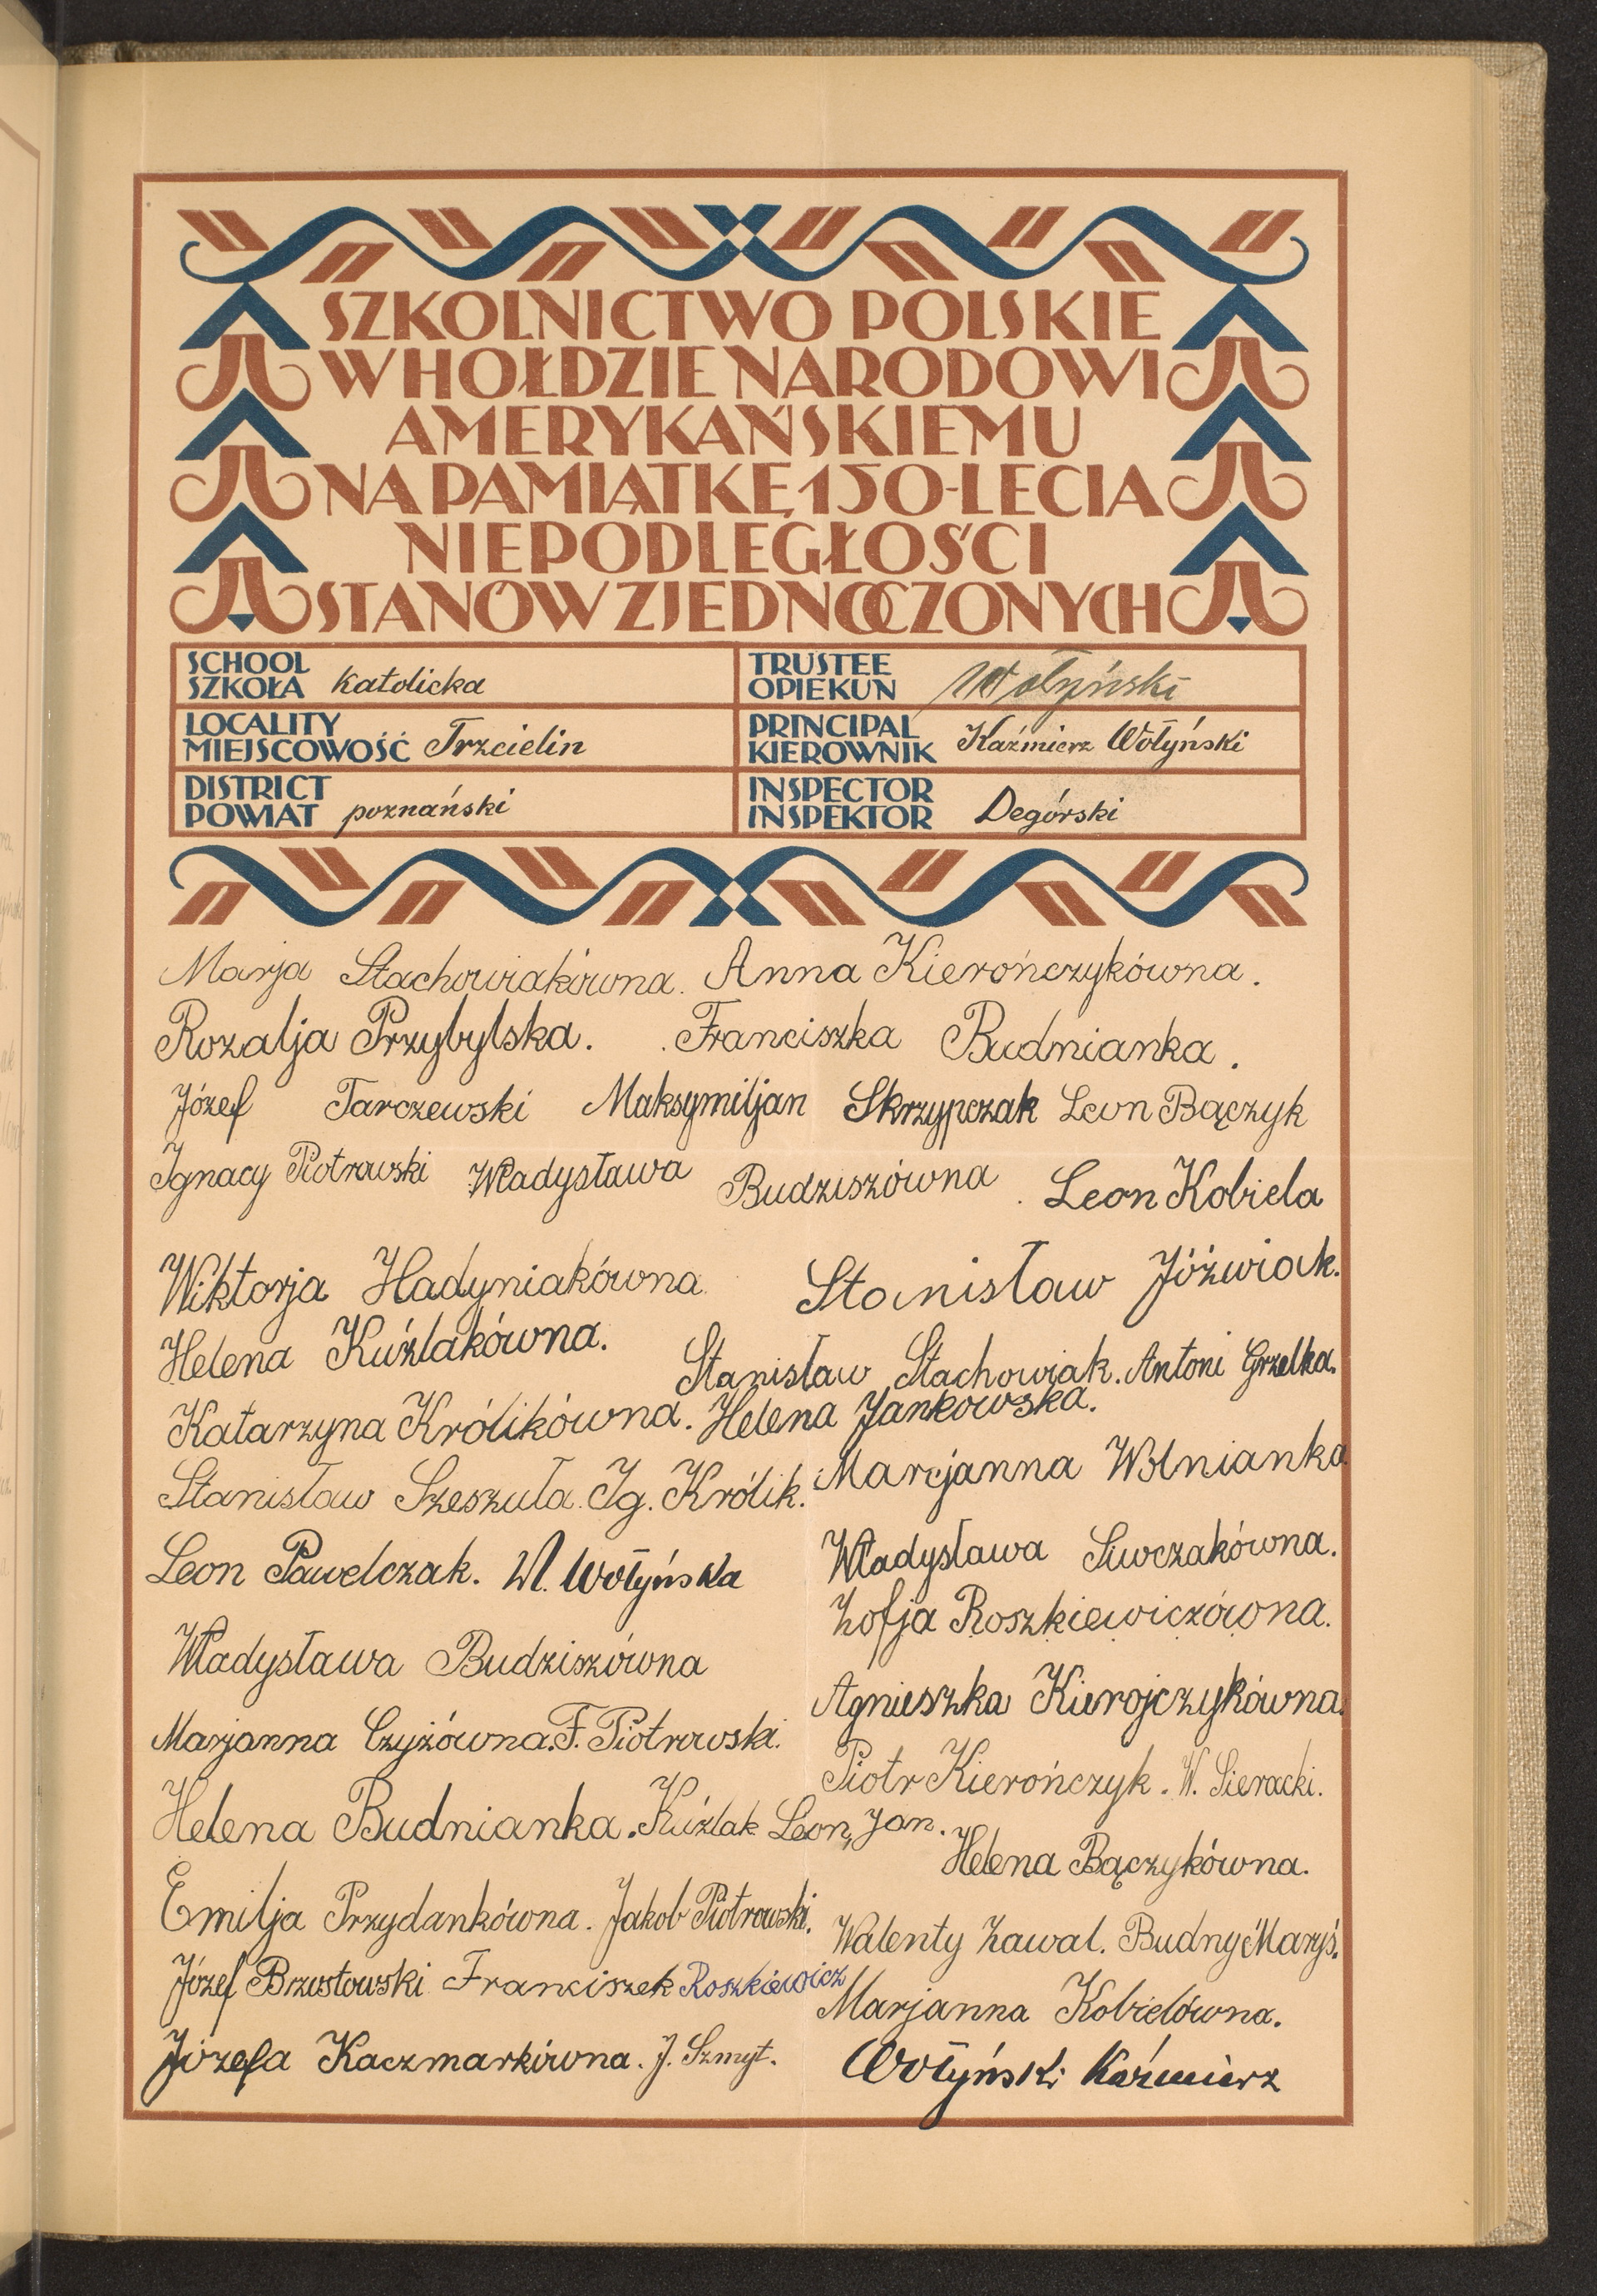 SZKOLNICTWO POLSKIE
W HOŁDZIE NARODOWI
AMERYKAŃSKIEMU
NA PAMIĄTKĘ 150-LECIA
NIEPODLEGŁOŚCI
STANÓW ZJEDNOCZONYCH
SCHOOL
SZKOŁA katolicka
TRUSTEE
OPIEKUN Wołyński
LOCALITY
MIEJSCOWOŚĆ Trzcielin
PRINCIPAL
KIEROWNIK Kaźmierz Wołyński
DISTRICT
POWIAT poznański
INSPECTOR
INSPEKTOR Degórski
Marja Stachowiakówna. Anna Kierończykówna.
Rozalja Przybylska. Franciszka Budnianka.
Józef Tarczewski Maksymiljan Skrzypczak Leon Bączyk
Ignacy Piotrowski Władysława Budziszówna. Leon Kobiela
Wiktorja Hadyniakówna. Stanisław Jóźwiak.
Helena Kuźlakówna. Stanisław Stachowiak. Antoni Grzelka.
Katarzyna Królikówna. Helena Jankowska.
Stanisław Szeszuła. Ig. Królik. Marcjanna Wolnianka
Leon Pawelczak. Wł. Wołyńska
Władysława Siwczakówna.
Zofja Roszkiewiczówna.
Władysława Budziszówna
Agnieszka Kierojczykówna.
Marjanna Czyżówna. F. Piotrowski.
Piotr Kierończyk. W. Sieracki.
Helena Budnianka. Kuźlak Leon, Jan.
Helena Bączykówna.
Emilja Przydankówna. Jakob Piotrowski.
Walenty Zawal. Budny Maryś.
Józef Brzostowski Franciszek Roszkiewicz
Marjanna Kobielówna.
Józefa Kaczmarkówna. J. Szmyt.
Wołyński Kaźmierz